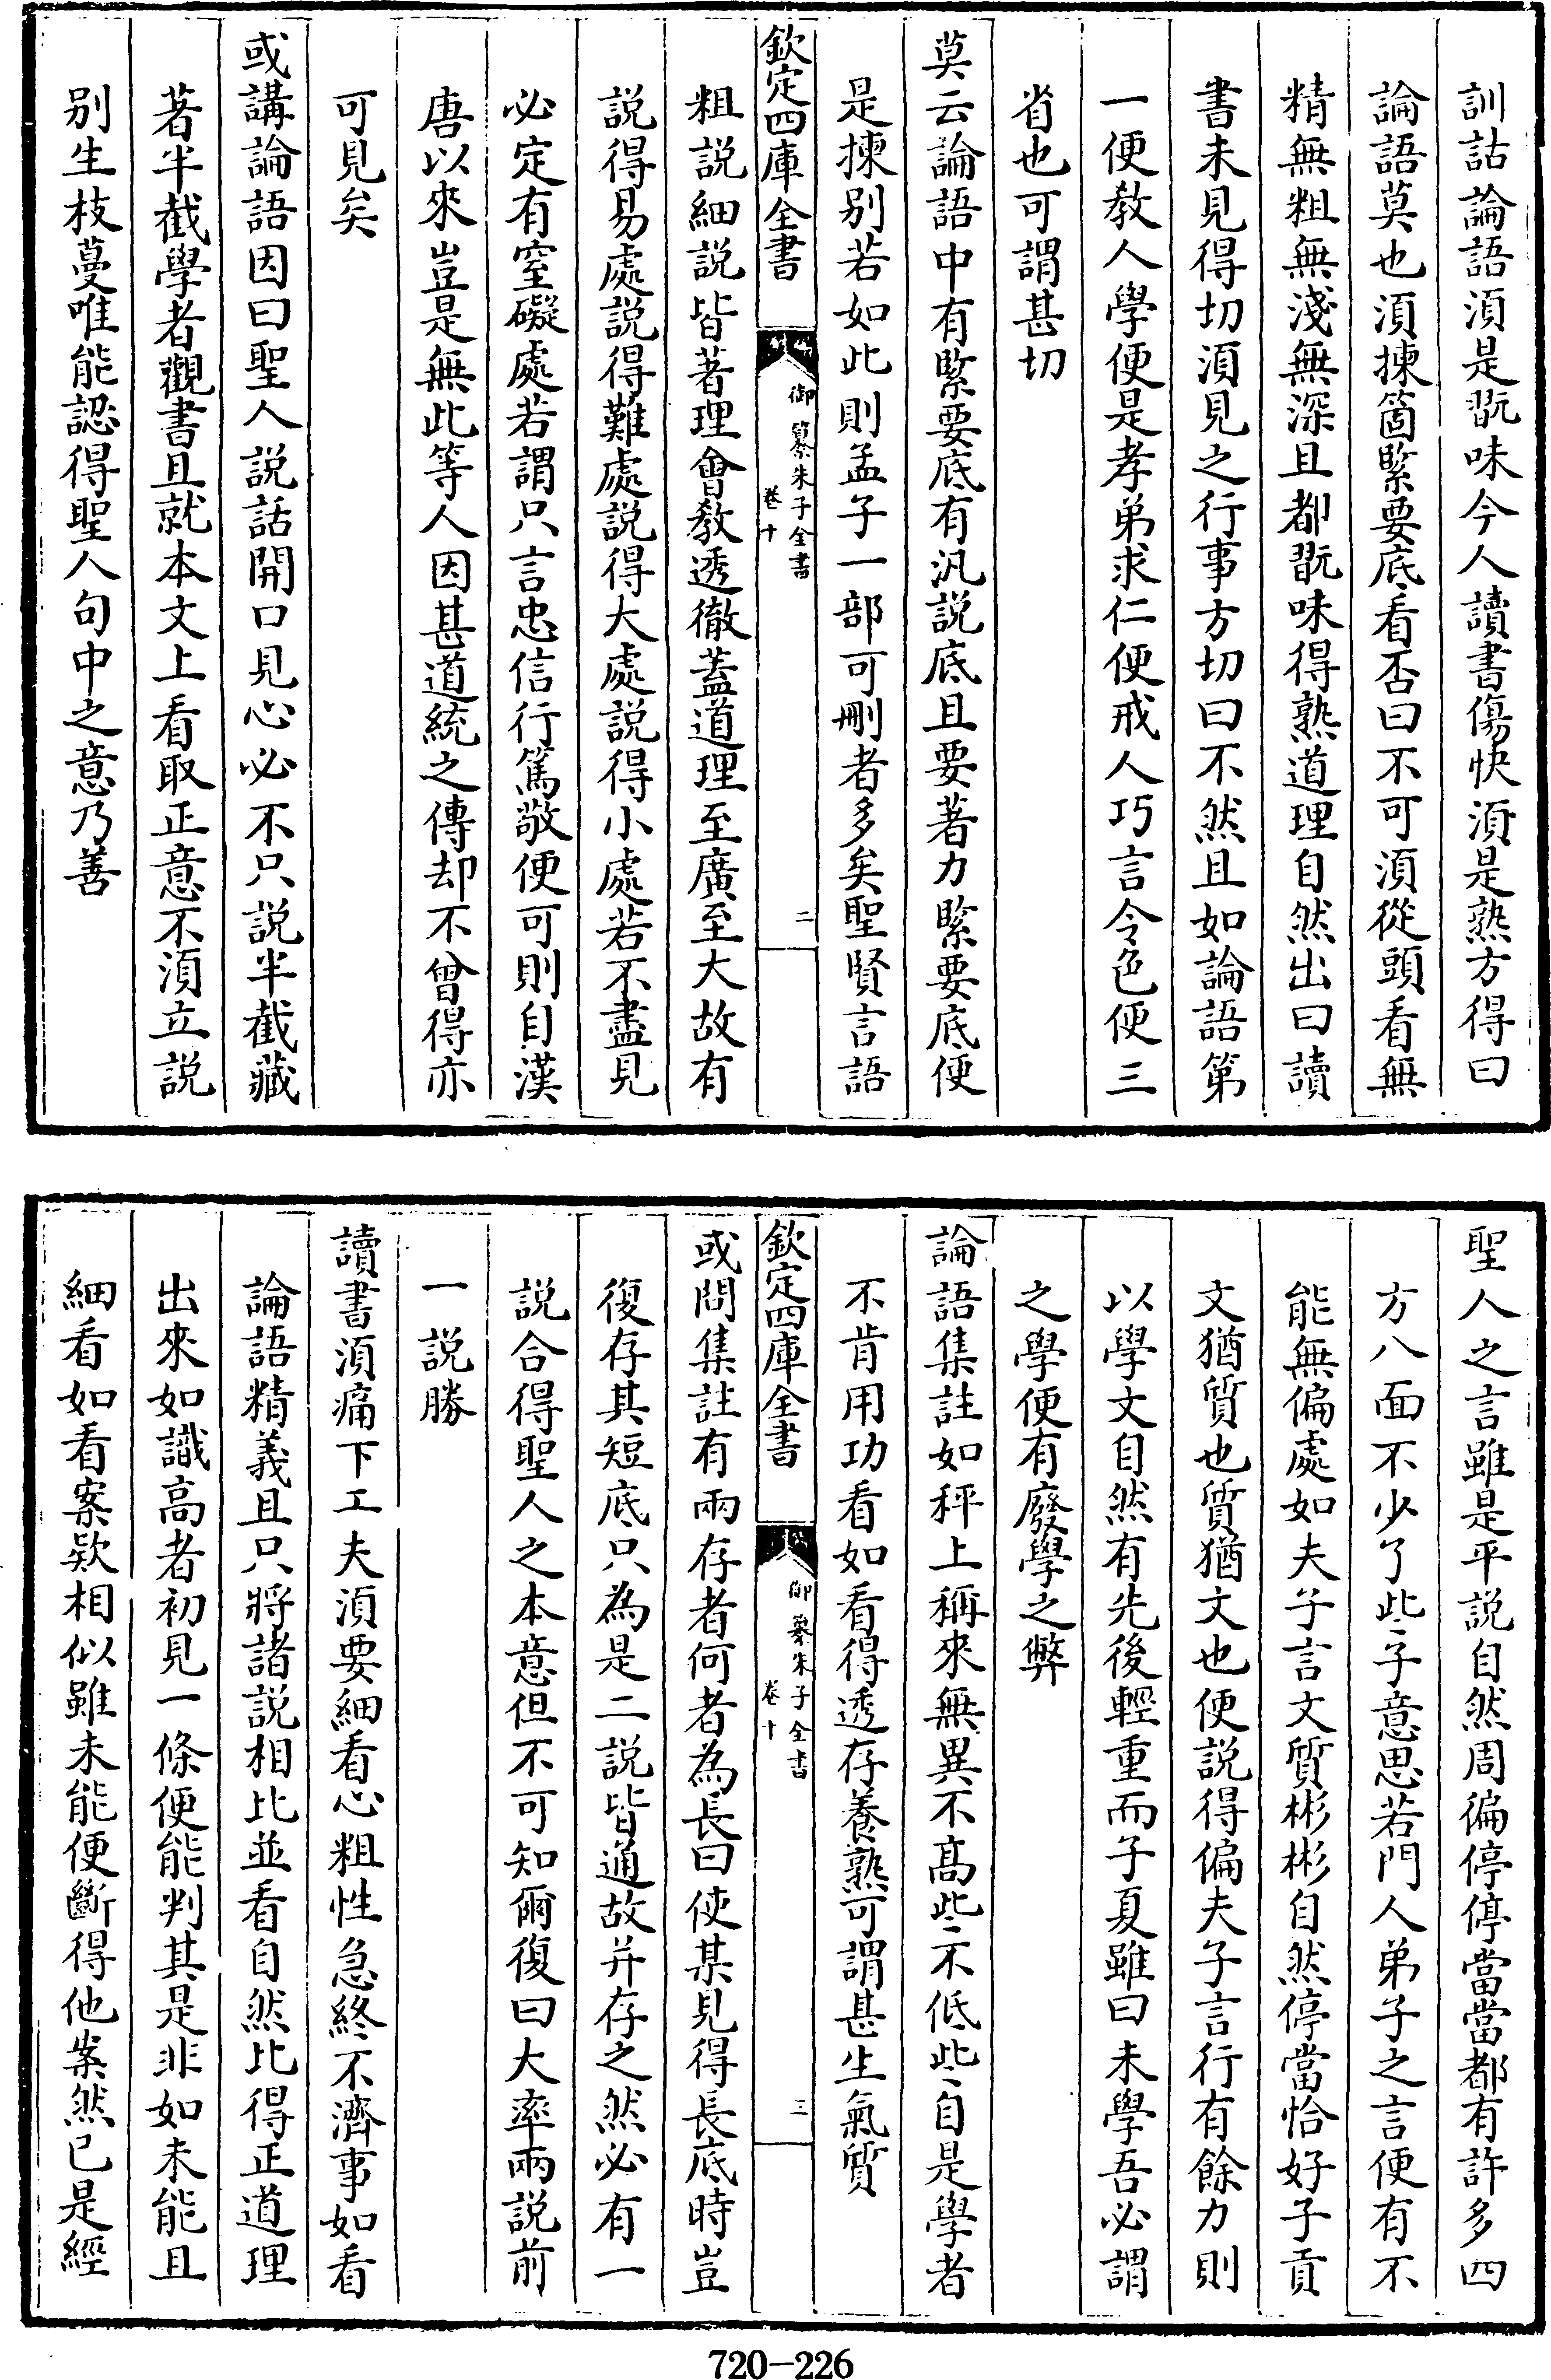 訓詁論語須是翫味今人讀書傷快須是熟方得曰
論語莫也須揀箇緊要底看否曰不可須從頭看無
精無粗無淺無深且都翫味得熟道理自然出曰讀
書未見得切須見之行事方切曰不然且如論語第
一便教人學便是孝弟求仁便戒人巧言令色便三
省也可謂甚切
莫云論語中有緊要底有汎說底且要著力緊要底便
是揀别若如此則孟子一部可刪者多矣聖賢言語
欽定四庫全書
御纂朱子全書
卷十
二
粗說細說皆著理會教透徹蓋道理至廣至大故有
說得易處說得難處說得大處說得小處若不盡見
必定有窒礙處若謂只言忠信行篤敬便可則自漢
唐以來豈是無此等人因甚道統之傳却不曾得亦
可見矣
或講論語因曰聖人說話開口見心必不只說半截藏
著半截學者觀書且就本文上看取正意不須立說
别生枝蔓唯能認得聖人句中之意乃善
聖人之言雖是平說自然周徧停停當當都有許多四
方八面不少了些子意思若門人弟子之言便有不
能無偏處如夫子言文質彬彬自然停當恰好子貢
文猶質也質猶文也便說得偏夫子言行有餘力則
以學文自然有先後輕重而子夏雖曰未學吾必謂
之學便有廢學之弊
論語集註如秤上稱來無異不髙些不低些自是學者
不肯用功看如看得透存養熟可謂甚生氣質
欽定四庫全書
御纂朱子全書
卷十
三
或問集註有兩存者何者為長曰使某見得長底時豈
復存其短底只為是二說皆通故并存之然必有一
說合得聖人之本意但不可知爾復曰大率兩說前
一說勝
讀書須痛下工夫須要細看心粗性急終不濟事如看
論語精義且只將諸說相比並看自然比得正道理
出來如識高者初見一條便能判其是非如未能且
細看如看案欵相似雖未能便斷得他案然已是經
720-226